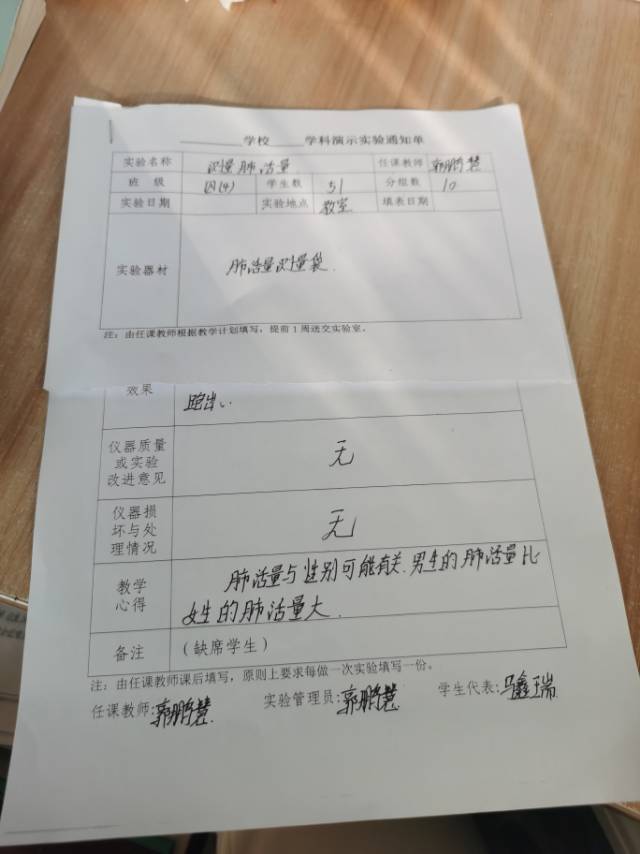 学校 学科演示实验通知单
实验名称 测量肺活量 任课教师 郭鹏慧
班 级 四(4) 学生数 51 分组数 10
实验日期 实验地点 教室 填表日期
实验器材 肺活量测量袋.
注：由任课教师根据教学计划填写，提前1周送交实验室。
效果
仪器质量或实验改进意见 无
仪器损坏与处理情况 无
教学心得 肺活量与性别可能有关.男生的肺活量比
女生的肺活量大.
备注 (缺席学生)
注：由任课教师课后填写，原则上要求每做一次实验填写一份。
任课教师:郭鹏慧 实验管理员:郭鹏慧 学生代表:马鑫瑞